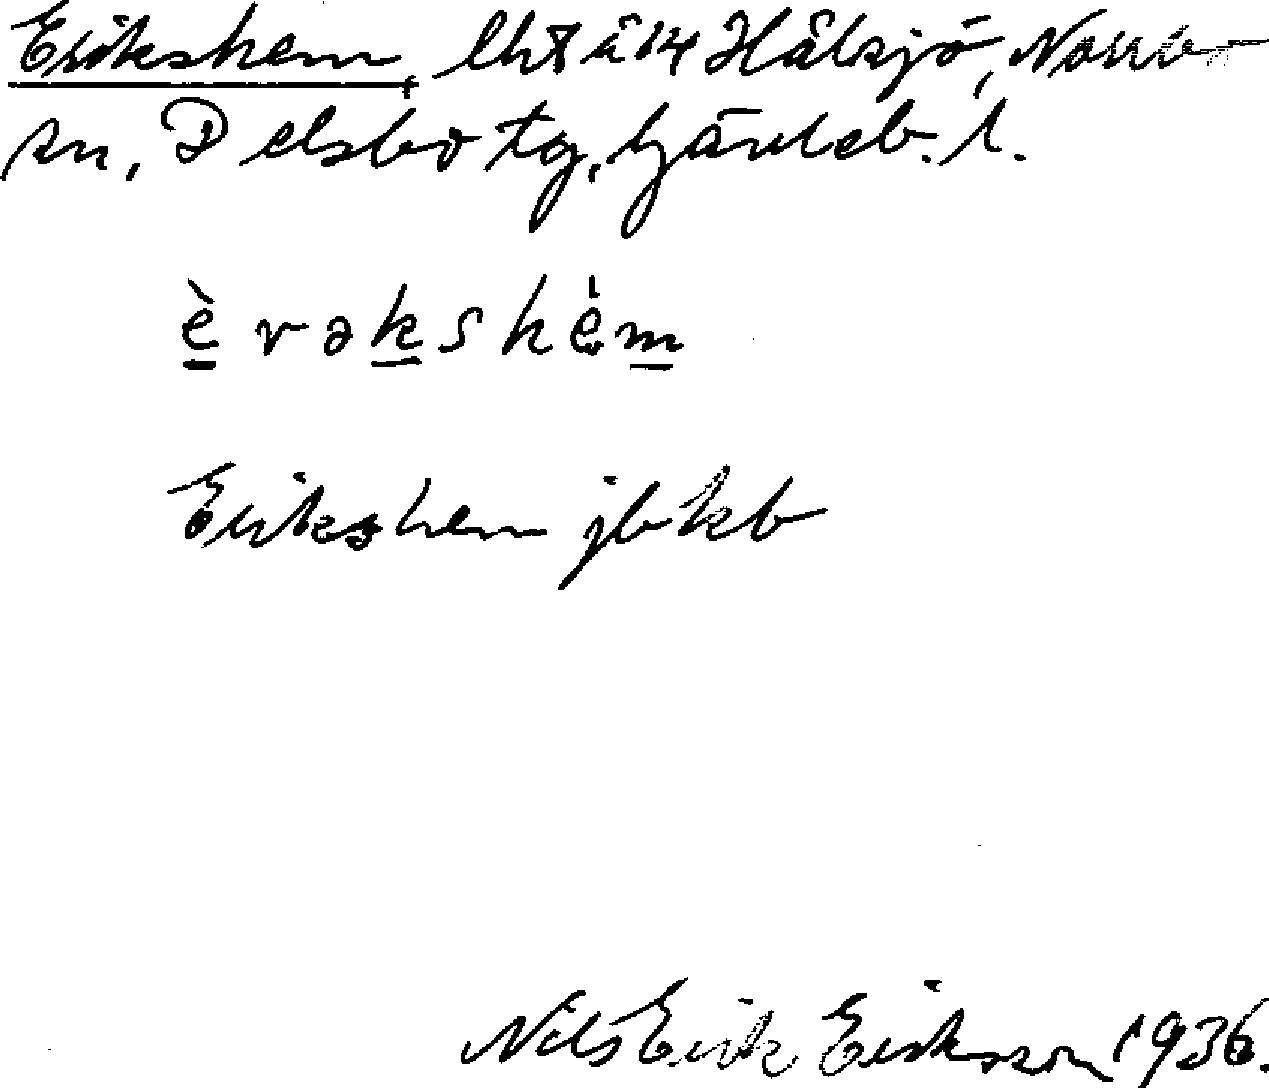 Erikshem, lht å 14 Hålsjö, Norrbo
sn, Delsbo tg, Gävleb. l.
è r ə k s h è m
Erikshem jb kb
Nils Erik Eriksson 1936.